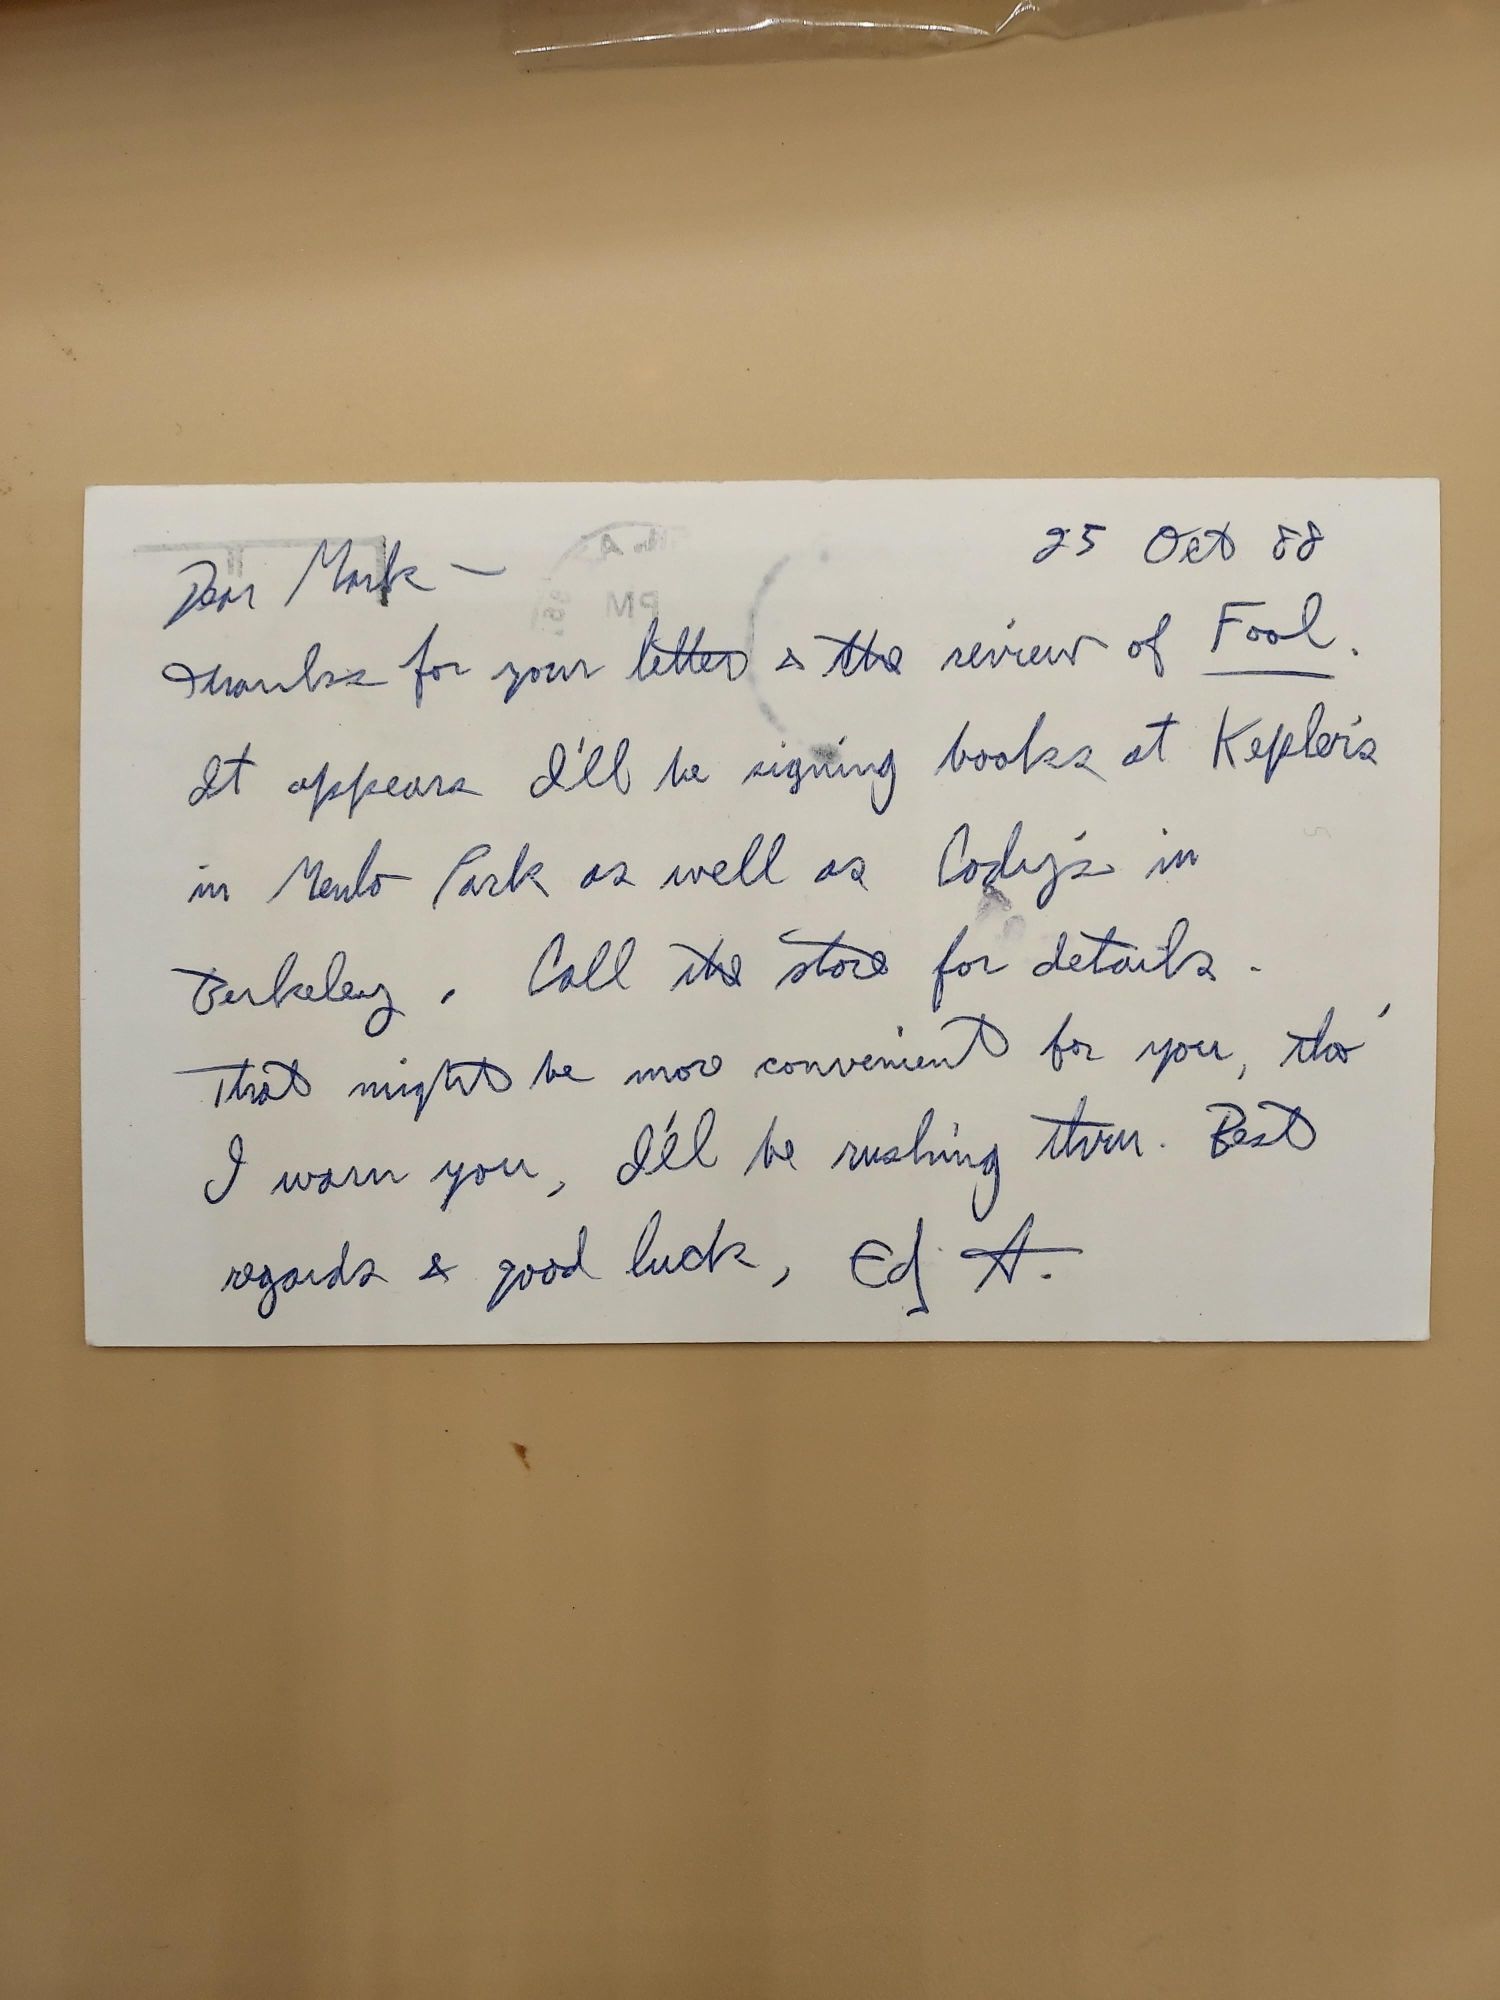 25 Oct 88
Dear Mark —
Thanks for your letter & the review of Fool.
It appears I'll be signing books at Kepler's
in Menlo Park as well as Cody's in
Berkeley. Call the store for details.
That might be more convenient for you, tho'
I warn you, I'll be rushing thru. Best
regards & good luck, Ed A.
PM